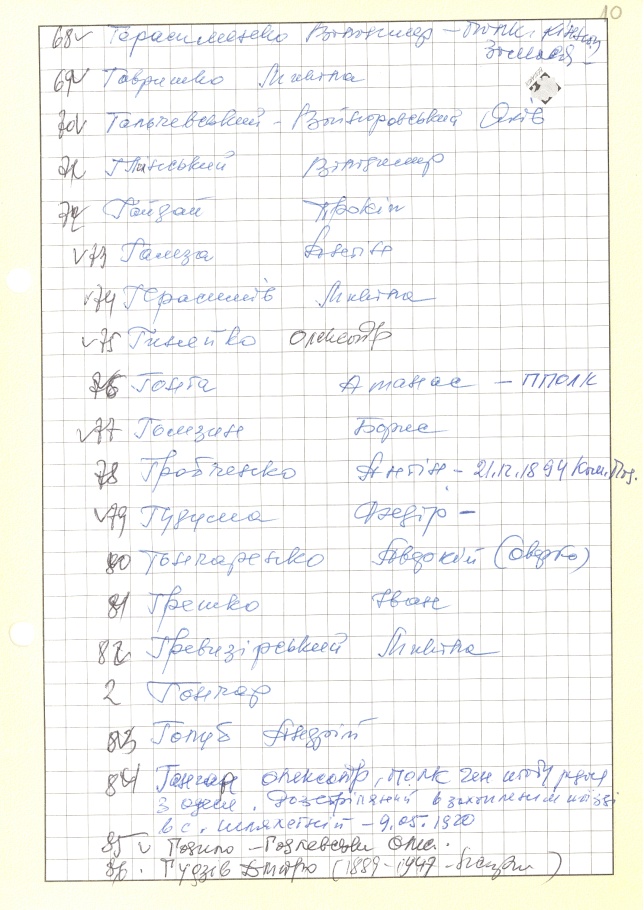 10
68 Герасименко Володимир – полк. кінної
69 Гавришко Микита
70 Гальчевський – Войнаровський Яків
71 Глинський Володимир
72 Гайдай Прокіп
73 Гамза Антін
74 Герасимів Микита
75 Гинейко Олександр
76 Гонта Атанас – ППОЛК
77 Гомзин Борис
78 Гробченко Антін – 21.IV.1894
79 Гудима Федір –
80 Гончаренко Авдокій (Овдій)
81 Грешко Іван
82 Гревизірський Микита
2 Гончар
83 Голуб Андрій
84 Гончар Олександр, полк ген штабу
з Одеси. Розстріляний в захопленім поїзді
в с. – 9.05.1920
85
86. Гудзів Дмитро (1889–1947 – )